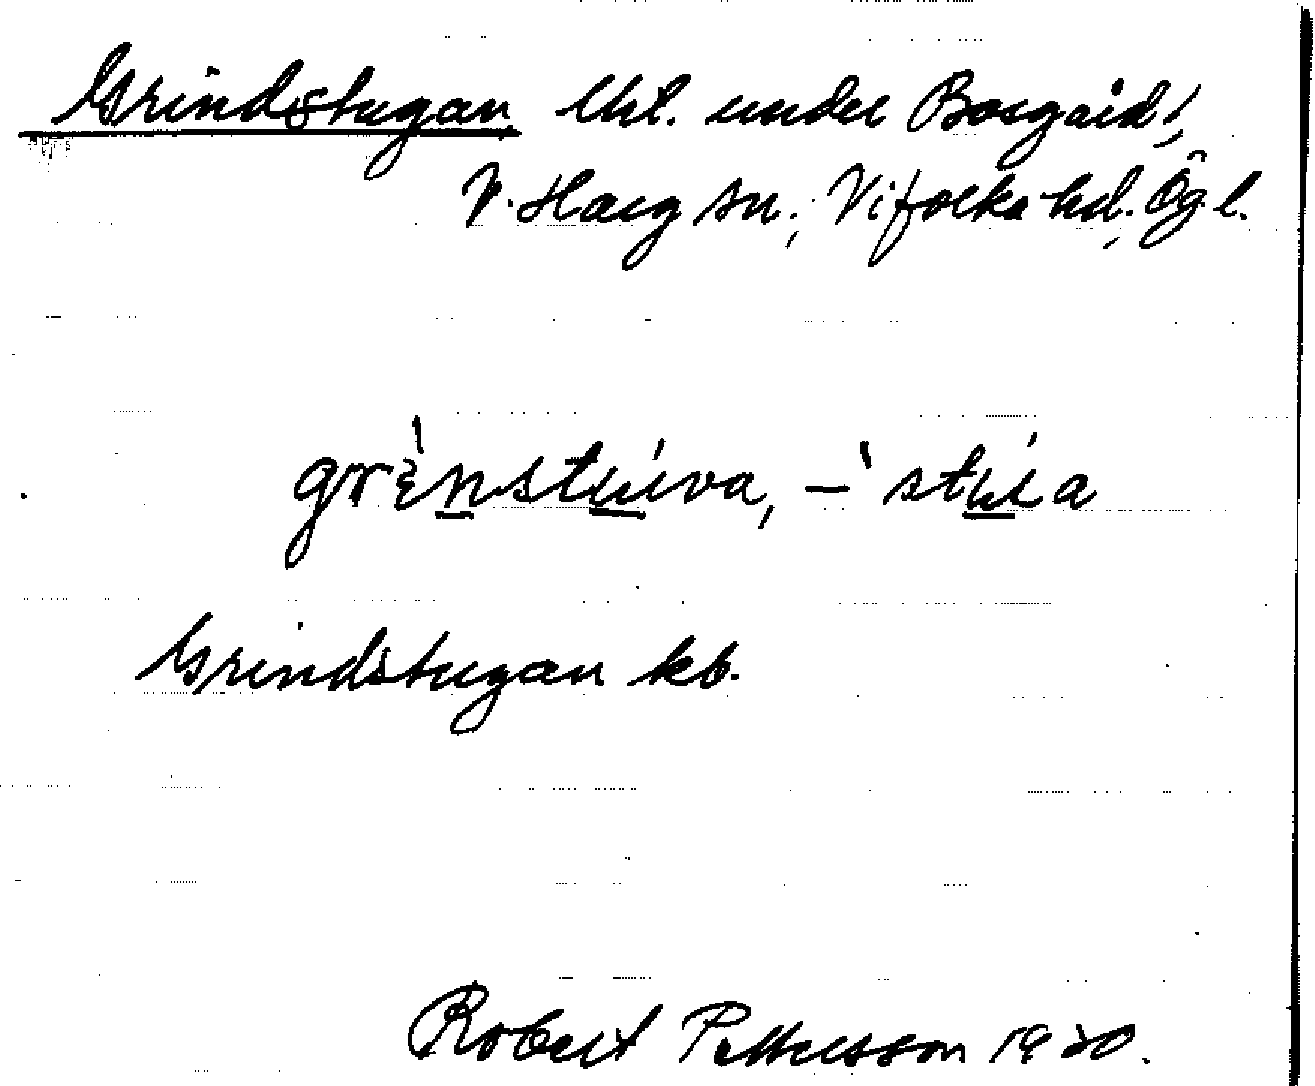 Grindstugan, lht. under Borgård,
V. Harg sn., Vifolka hd., Ög. l.
grènstúva, -̀ stúa
Grindstugan kb.
Robert Pettersson 1920.